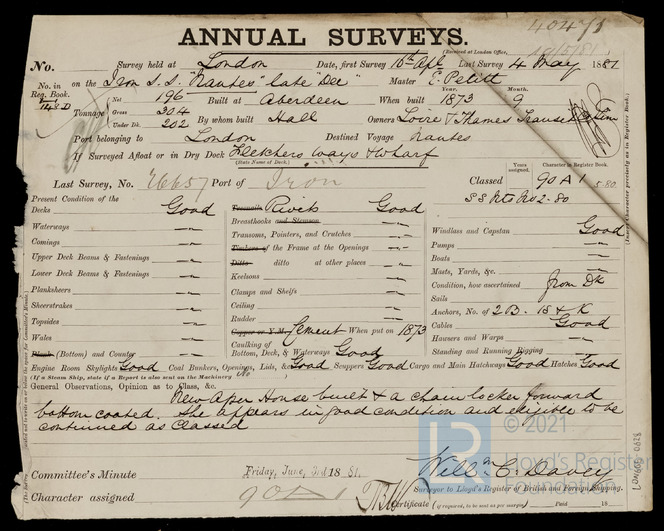 40471
ANNUAL SURVEYS.
(Received at London Office, 18/5/81
No. Survey held at London Date, first Survey 10th Apl Last Survey 4 May 1881
No. in Reg. Book. on the Iron S.S. "Nantes" late "Dee" Master E. Petitt
Tonnage Net 196 Gross 304 Under Dk. 202
Built at Aberdeen When built Year. 1873 Month. 9
By whom built Hall Owners Loire & Thames Transit
Port belonging to London Destined Voyage Nantes
If Surveyed Afloat or in Dry Dock Fletchers ways & wharf
(State Name of Dock.)
Last Survey, No. Port of Iron
Years assigned. Character in Register Book.
Classed 90 A 1 5.80
Present Condition of the
Decks Good
Waterways "
Comings "
Upper Deck Beams & Fastenings "
Lower Deck Beams & Fastenings "
Planksheers "
Sheerstrakes "
Topsides "
Wales "
Plank (Bottom) and Counter "
Treenails Rivets Good
Breasthooks and Stemson "
Transoms, Pointers, and Crutches "
Timbers of the Frame at the Openings "
Ditto ditto at other places "
Keelsons "
Clamps and Shelfs "
Ceiling "
Rudder "
Copper or Y.M. Cement When put on 1873
Caulking of Bottom, Deck, & Waterways Good
Windlass and Capstan Good
Pumps "
Boats "
Masts, Yards, &c. "
Condition, how ascertained from Dk
Sails "
Anchors, No. of 2 B. 1 S & K
Cables Good
Hawsers and Warps "
Standing and Running Rigging "
Engine Room Skylights Good Coal Bunkers, Openings, Lids, &c. Good Scuppers Good Cargo and Main Hatchways Good Hatches Good
(If a Steam Ship, state if a Report is also sent on the Machinery No )
General Observations, Opinion as to Class, &c.
New House built & a chain locker forward
bottom coated. She appears in good condition and eligible to be
continued as Classed
Committee's Minute Friday, June, 3rd 18 81.
Character assigned 90A1
Willm C. Davey
Surveyor to Lloyd's Register of British and Foreign Shipping.
Certificate (if required, to be sent as per margin) Paid 18
© 2021
Lloyd's Register
Foundation